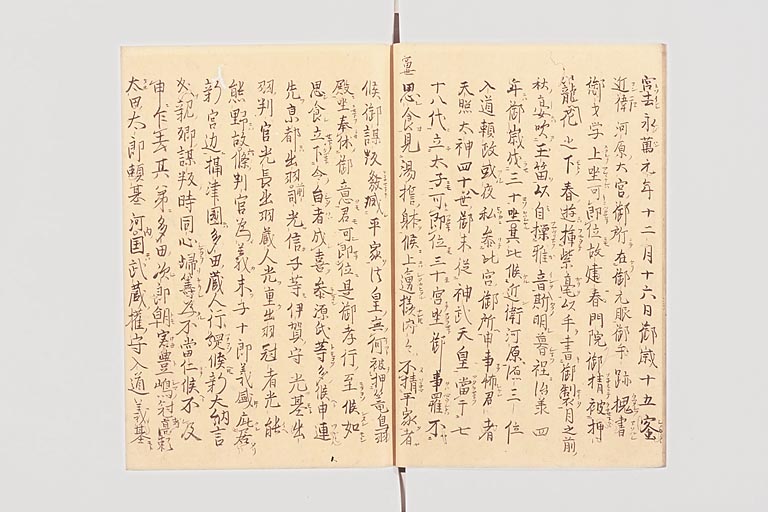 宮去永萬元年十二月十六日御歳十五蜜
近衛河原大宮御所在御元服御手跡槐書
御才学上坐可即位故建春門院御猜被押
籠花之下春遊揮紫毫以手書御製月之前
秋宴吹玉笛以自操雅音斯明暮程治羕四
年御歳成三十坐其比候近衛河原源三位
入道頼政或夜私参此宮御所申事怖君者
天照太神四十世御末従神武天皇當七
十八代立太子可即位三十宮坐御事羅不
思食見湯誓躰候上邊様内々不精平家者
候御謀叛發哉平家法皇無何被押籠鳥羽
殿坐奉休御意君可即位是御孝行至候如
思食立下令旨者成喜参源氏等多候申連
先京都出羽前司光信子等伊賀守光基出
羽判官光長出羽蔵人光重出羽冠者光能
熊野故六條判官為義末子十郎義盛庇居
新宮辺攝津國多田蔵人行綱候新大納言
成親卿謀叛時同心歸等為不當仁候不及
申乍去其弟多田次郎朝実豊嶋冠高頼
太田太郎頼基河内国武蔵權守入道義基